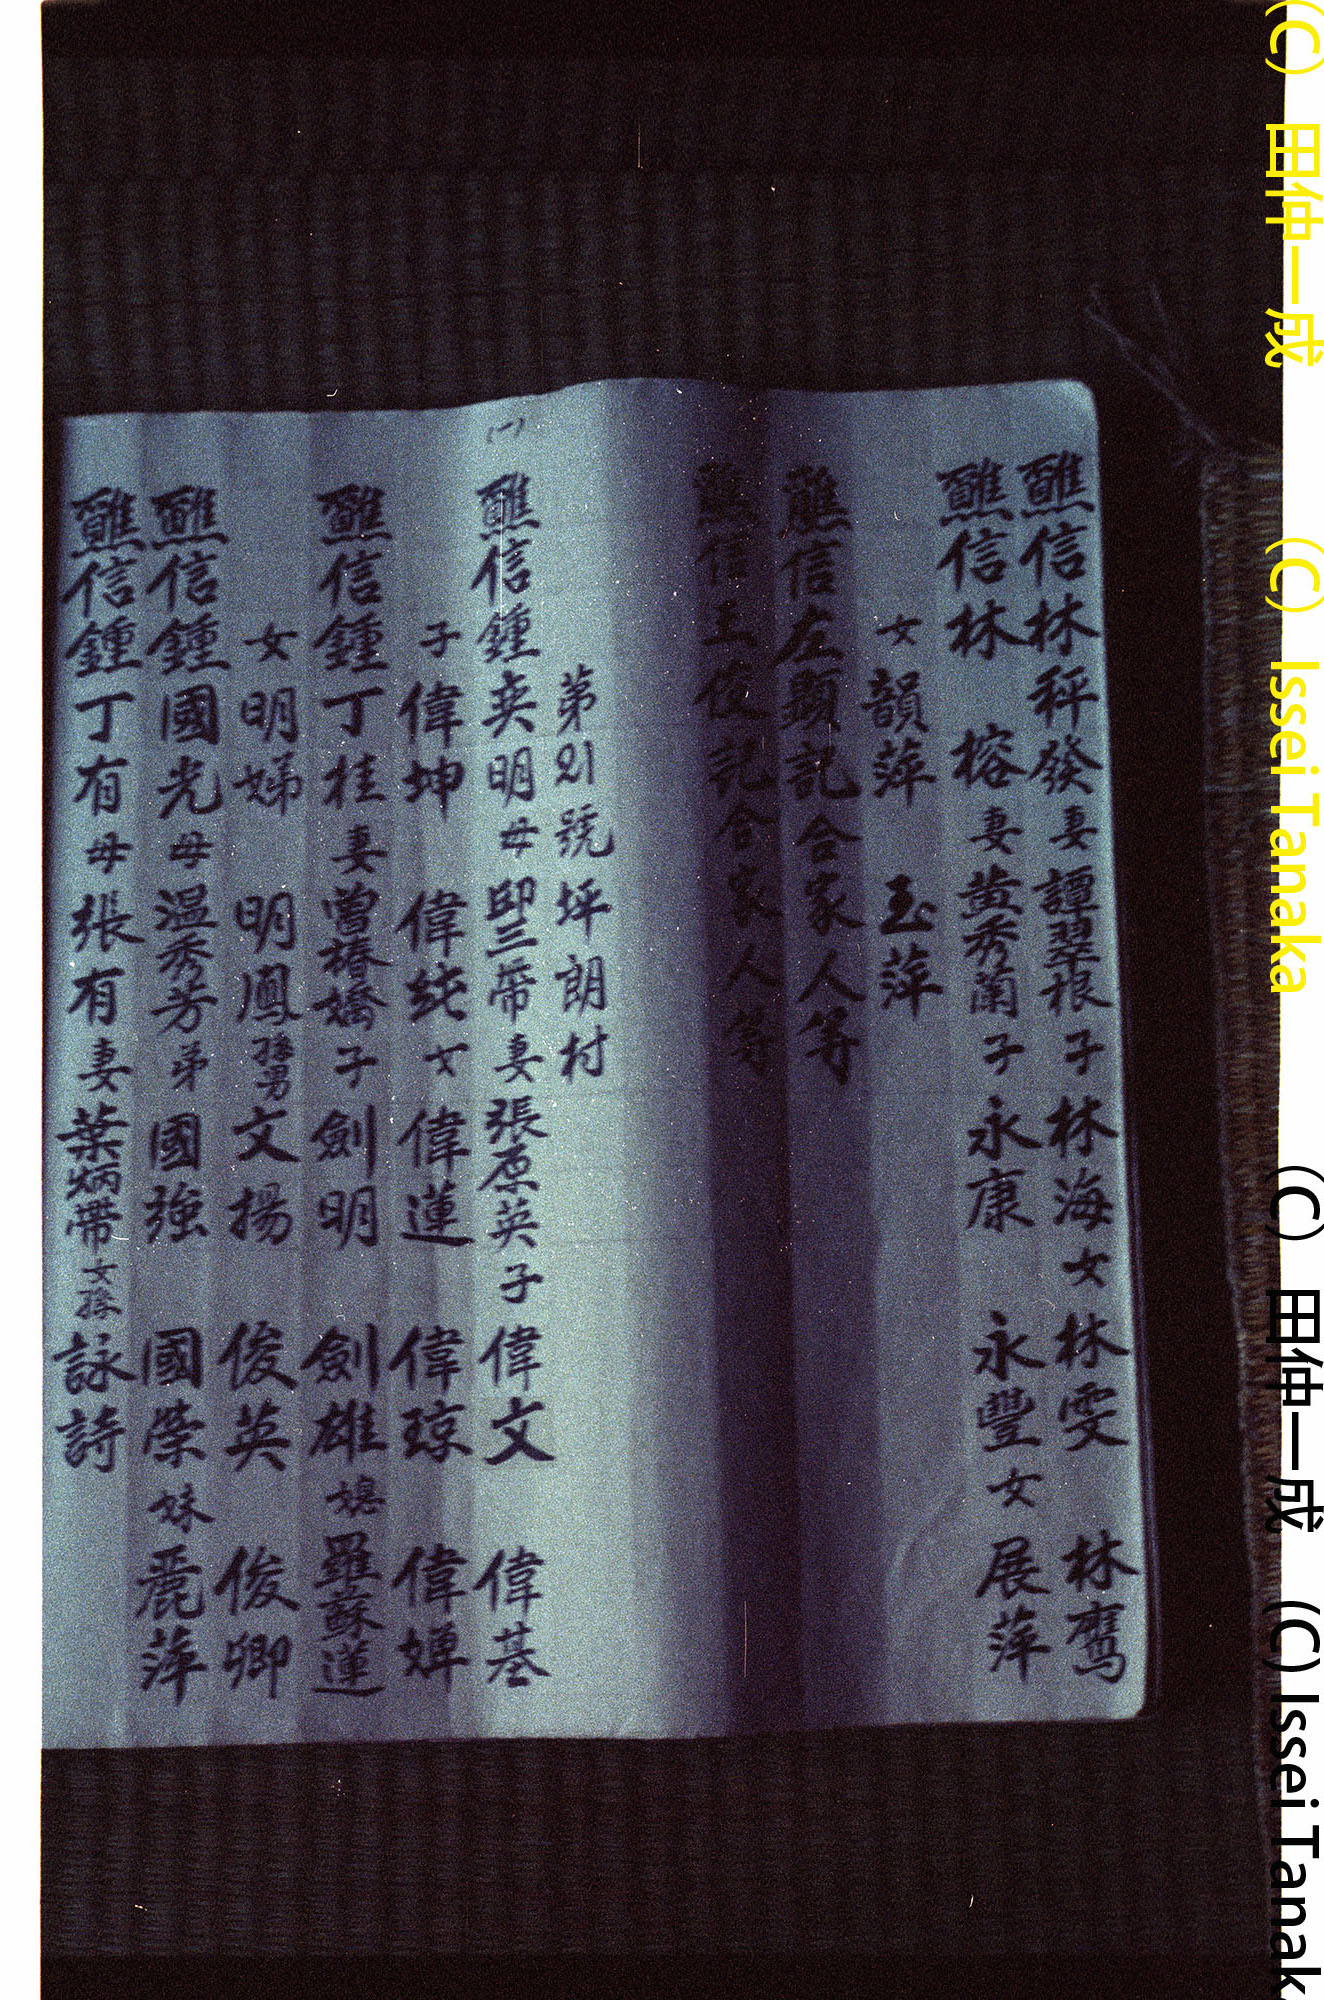 醮信林秤發妻譚翠根子林海女林雯 林鷹
醮信林 榕妻黃秀蘭子永康 永豐女展萍
女韻萍 玉萍
醮信左顯記合家人等
醮信王俊記合家人等
第21號坪朗村
(一) 醮信鍾奕明母邱三帶妻張原英子偉文 偉基
子偉坤 偉純女偉蓮 偉琼 偉婵
醮信鍾丁桂妻曾椿嬌子劍明 劍雄媳羅蘇蓮
女明娣 明鳳孫男文揚 俊英 俊卿
醮信鍾國光母温秀芳弟國強 國榮妹麗萍
醮信鍾丁有母張有妻葉炳帶女孫詠詩
(C) 田仲一成 (C) Issei Tanaka (C) 田仲一成 (C) Issei Tanak